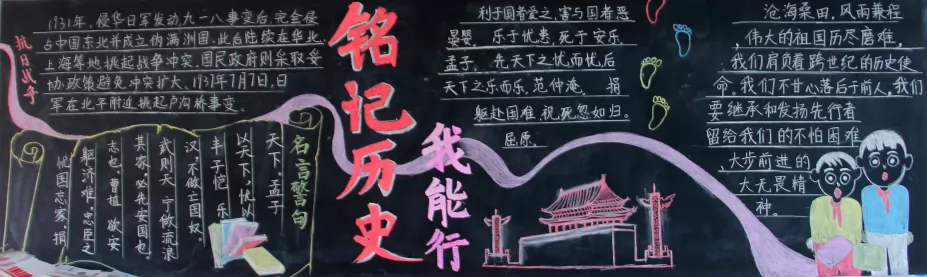 抗日战争
1931年,侵华日军发动九一八事变后,完全侵
占中国东北并成立伪满洲国,此后陆续在华北、
上海等地挑起战争冲突,国民政府则采取妥
协政策避免冲突扩大。1937年7月7日,日
军在北平附近挑起卢沟桥事变。
名言警句
天下。孟子
以天下,忧以
丰子恺 乐
汉,不做亡国奴。
武则天 宁做流浪
其家,必先安国也。
志也。曹植 欲安
躯济难,忠臣之
忧国忘家,捐
铭记历史
我能行
利于国者爱之,害与国者恶
晏婴, 乐于忧患,死于安乐
孟子, 先天下之忧而忧,后
天下之乐而乐,范仲淹, 捐
躯赴国难,视死忽如归。
屈原,
沧海桑田,风雨兼程
,伟大的祖国历尽磨难,
我们肩负着跨世纪的历史使
命。我们不甘心落后于前人,我们
要继承和发扬先行者
留给我们的不怕困难
大步前进的
大无畏精
神。